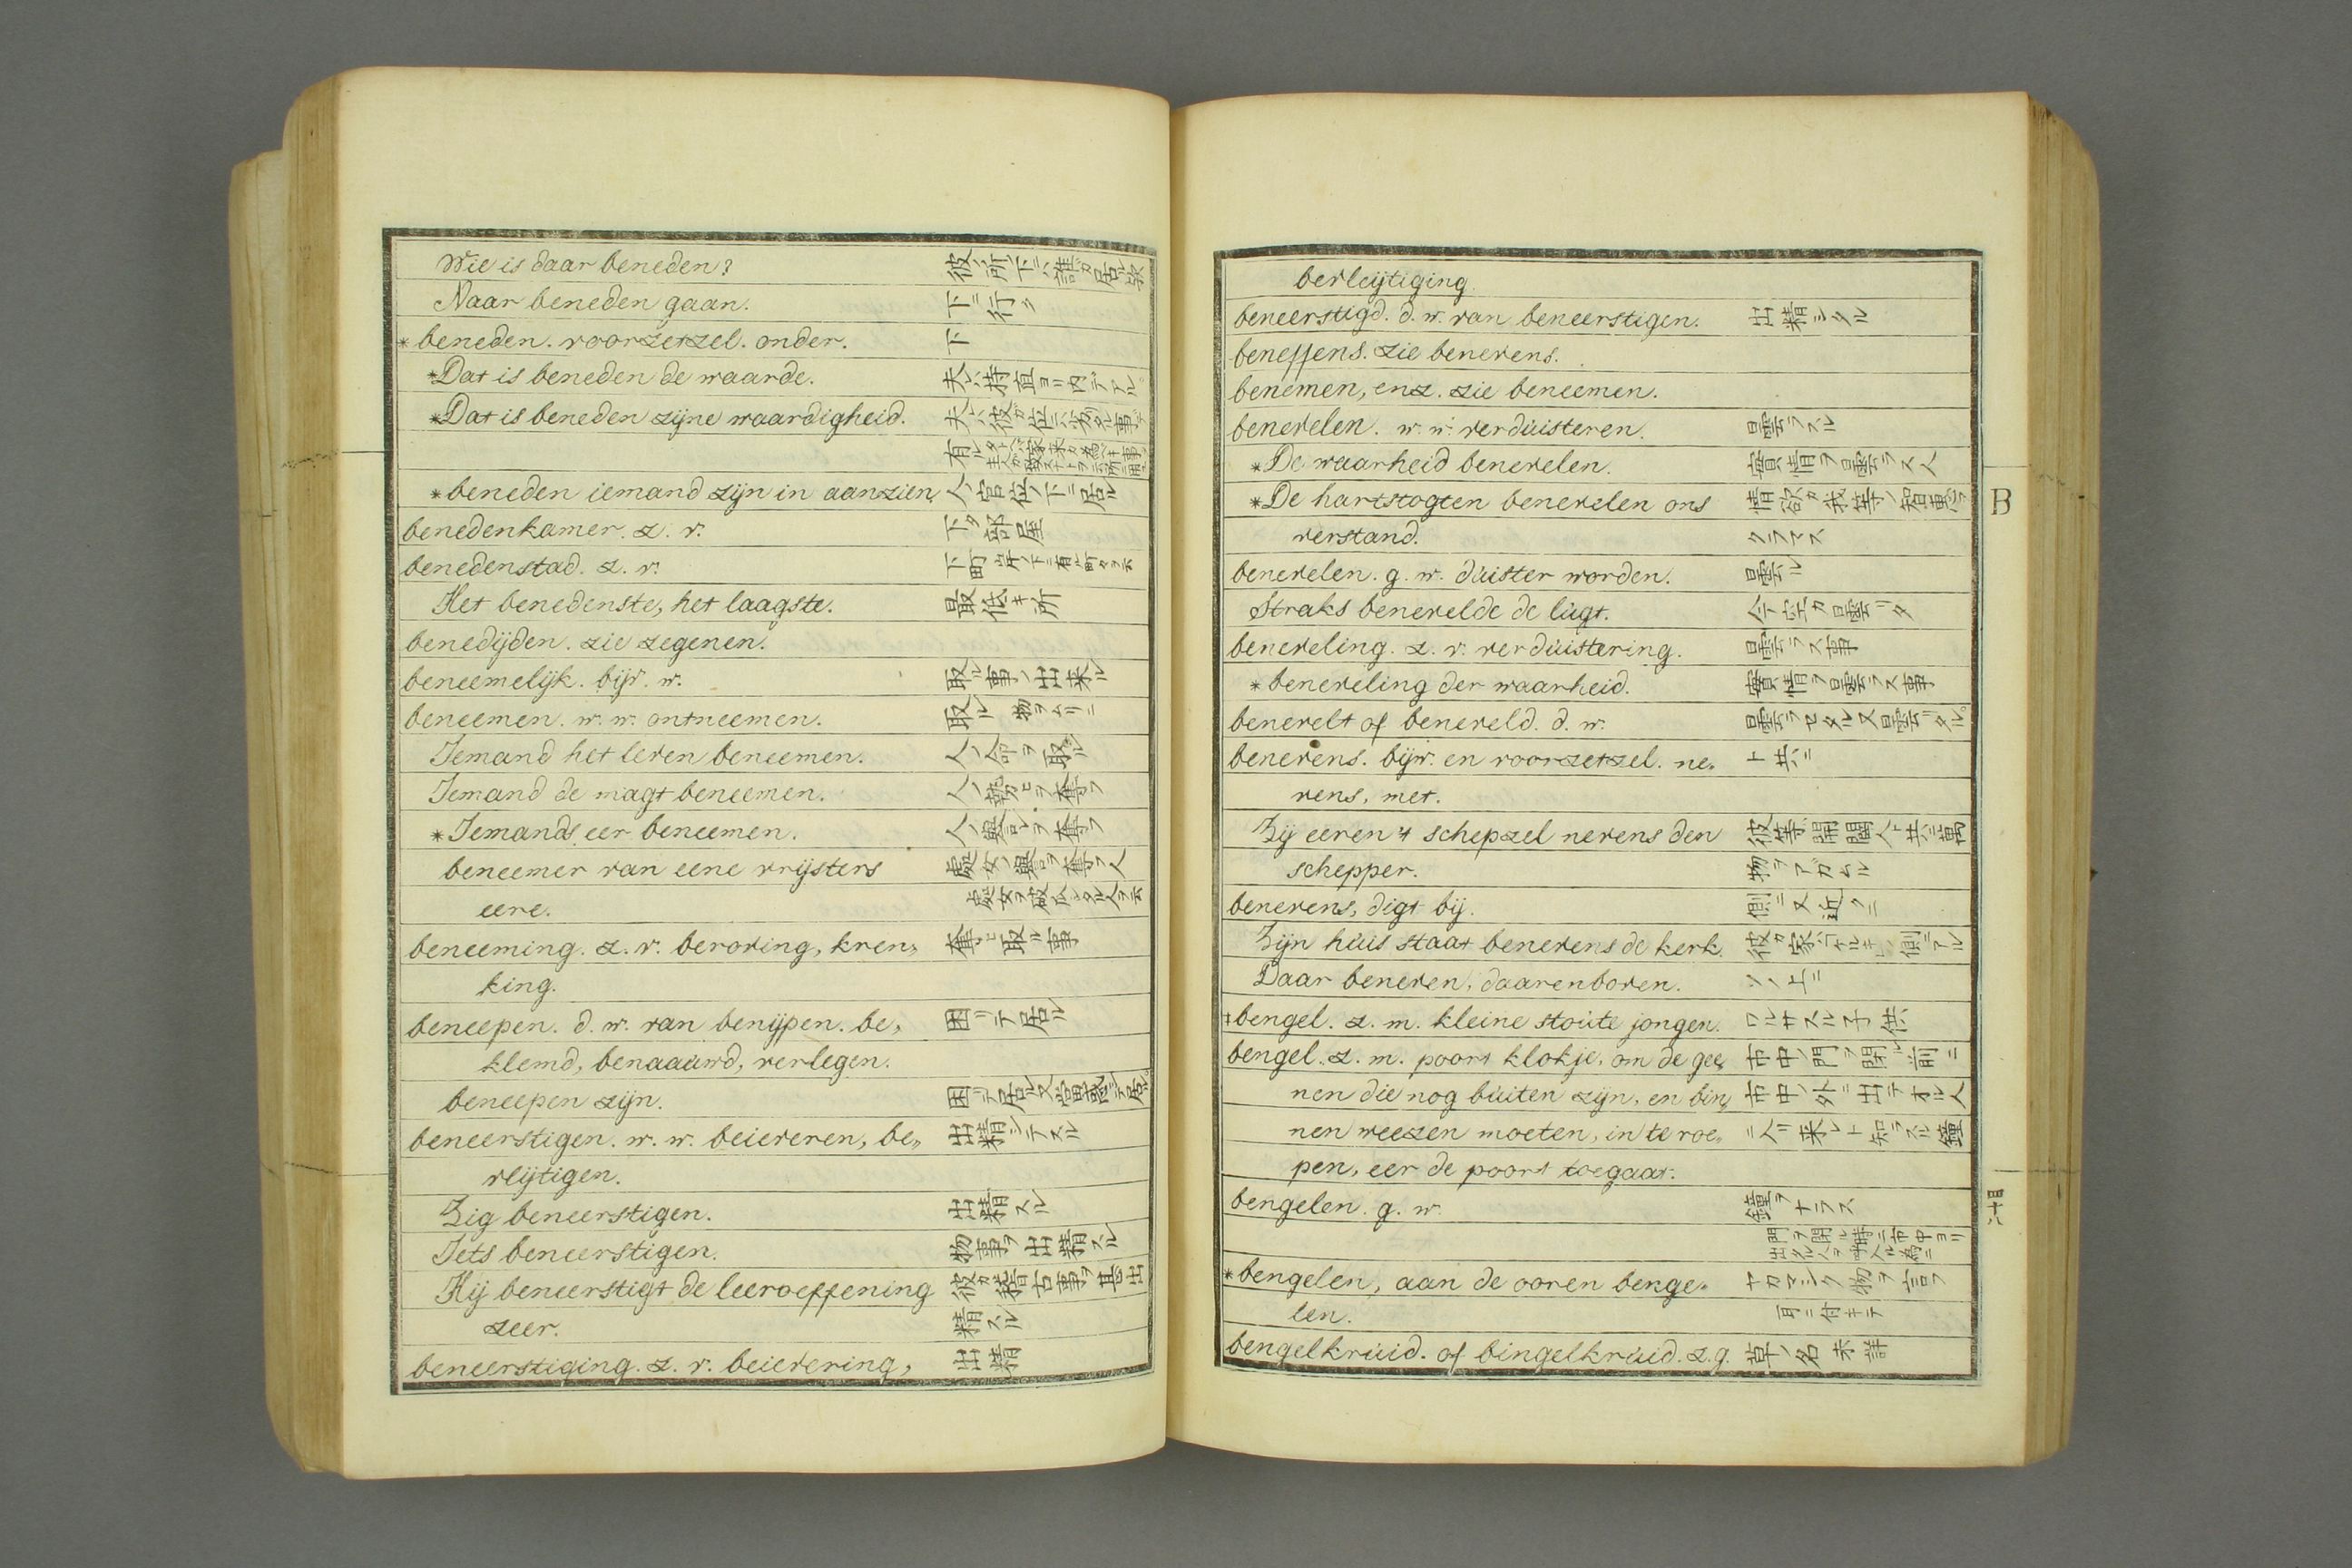 Wie is daar beneden? 彼ノ所下ニハ誰ガ居ル歟
Naar beneden gaan. 下ニ行ク
*beneden. voorzetzel. onder. 下
*Dat is beneden de waarde. 夫ハ持直ヨリ内デアル。
*Dat is beneden zijne waardigheid.
*beneden iemand zijn in aanzien, 人ノ官位ノ下ニ居ル
benedenkamer. z. v. 下タ部屋
benedenstad. z. v. 下町
Het benedenste, het laagste. 最低キ所
benedijden. zie zegenen.
beneemelijk. bijv. w. 取ル事ノ出来ル
beneemen. w. w. ontneemen. 取ル 物ヲムリニ
Iemand het leven beneemen. 人ノ命ヲ取ル
Iemand de magt beneemen. 人ノ勢ヒヲ奪フ
*Iemands eer beneemen. 人ノ譽レヲ奪フ
beneemer van eene vrijsters 處女ノ譽レヲ奪フ人
eere. 處女ヲ破瓜シタル人ヲ云
beneeming. z. v. beroving, kren„ 奪ヒ取ル事
king.
beneepen. d. w. van benijpen. be„ 困ツテ居ル
klemd, benaauwd, verlegen.
beneepen zijn. 困ツテ居ル又當惑シテ居ル。
beneerstigen. w. w. beieveren, be„ 出精シテスル
vlijtigen.
Zig beneerstigen. 出精スル
Iets beneerstigen. 物事ヲ出精スル
Hij beneerstigt de leeroeffening 彼ガ稽古事ヲ甚出
zeer. 精スル
beneerstiging. z. v. beievering, 出精
bevleijtiging.
beneerstigd. d. w. van beneerstigen. 出精シタル
beneffens. zie benevens.
benemen, enz. zie beneemen.
benevelen. w. w. verduisteren. 曇ラスル
*De waarheid benevelen. 實情ヲ曇ラス人
*De hartstogten benevelen ons 情欲ガ我等ノ智惠ヲ
B
verstand. クラマス
benevelen. g. w. duister worden. 曇ル
Straks benevelde de lugt. 今空ガ曇リタ
beneveling. z. v. verduistering. 曇ラス事
*beneveling der waarheid. 實情ヲ曇ラス事
benevelt of beneveld. d. w. 曇ラセタル又曇リタル。
benevens. bijw. en voorzetzel. ne„ ト共ニ
vens, met.
Zij eeren 't schepzel nevens den 彼等ハ開闢人ト共ニ萬
schepper. 物ヲアガムル
benevens, digt bij. 側ニ又近クニ
Zijn huis staat benevens de kerk.
Daar beneven, daarenboven. ソノ上ニ
‡bengel. z. m. kleine stoute jongen. ワルサスル子供
bengel. z. m. poort klokje, om de gee„ 市中ノ門ヲ閉ル前ニ
nen die nog buiten zijn, en bin„ 市中ノ外ニ出テオル人
nen weezen moeten, in te roe„ ニ入リ来レト知ラスル鐘
pen, eer de poort toegaat.
bengelen. g. w. 鐘ヲナラス
門ヲ閉ル時ニ市中ヨリ
出タル人ヲ呼入ル為ニ
*bengelen, aan de ooren benge„ ヤカマシク物ヲ言フ
len. 耳ニ付キテ
bengelkruid. of bingelkruid. z. g. 草ノ名 未詳